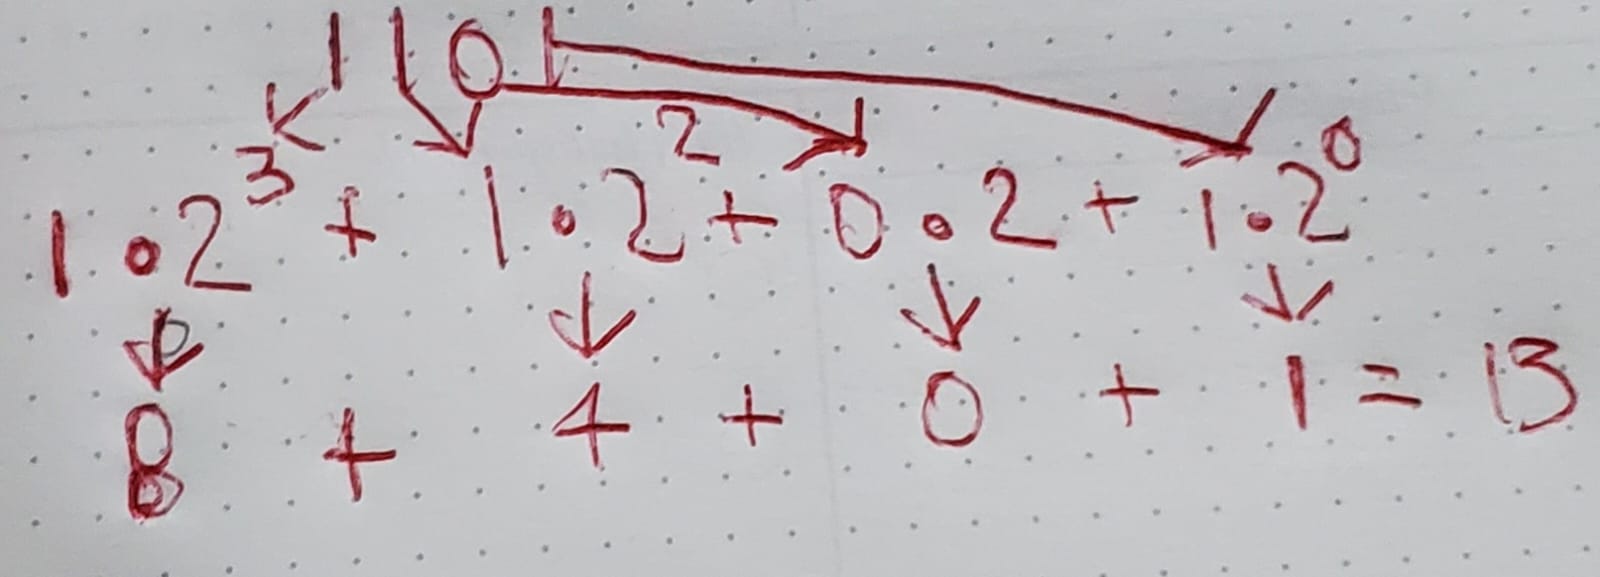 1101
1•2³ + 1•2² + 0•2 + 1•2⁰
8 + 4 + 0 + 1 = 13